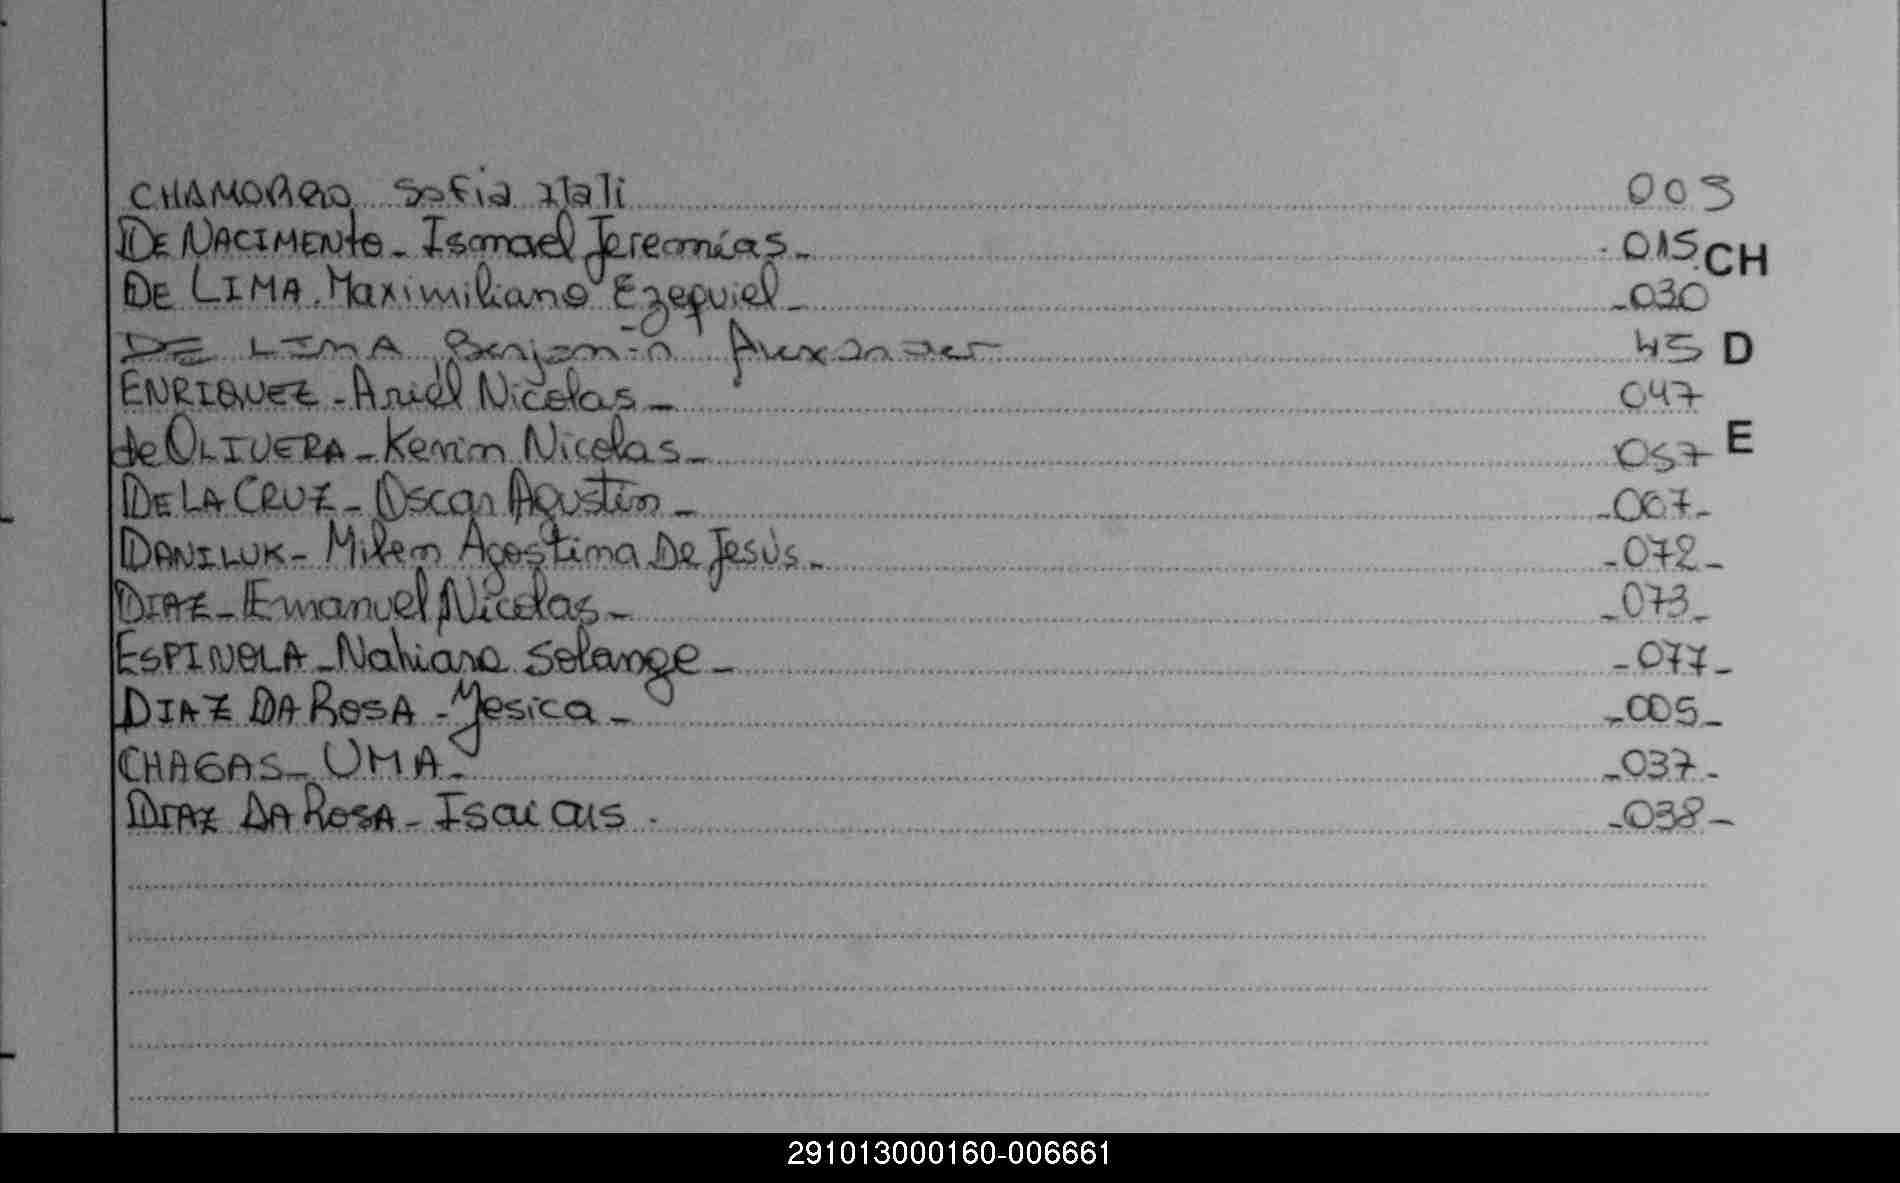 CHAMORRO Sofia Itali 003
DE NACIMENto - Ismael Jeremías - 015 CH
DE LIMA. Maximiliano Ezequiel - -030
DE LIMA Benjamin Alexander 45 D
ENRIQUEZ - Ariel Nicolas - 047
de OLIVERA - Kevin Nicolas - 057 E
DE LA CRUZ - Oscar Agustin - -067-
DANILUK - Milem Agostina De Jesús - -072-
DIAZ - Emanuel Nicolas - -073-
ESPINOLA - Nahiara Solange - -077-
DIAZ DA ROSA - Yesica - -005-
CHAGAS - UMA - -037-
DIAZ DA ROSA - Isaias . -038-
291013000160-006661